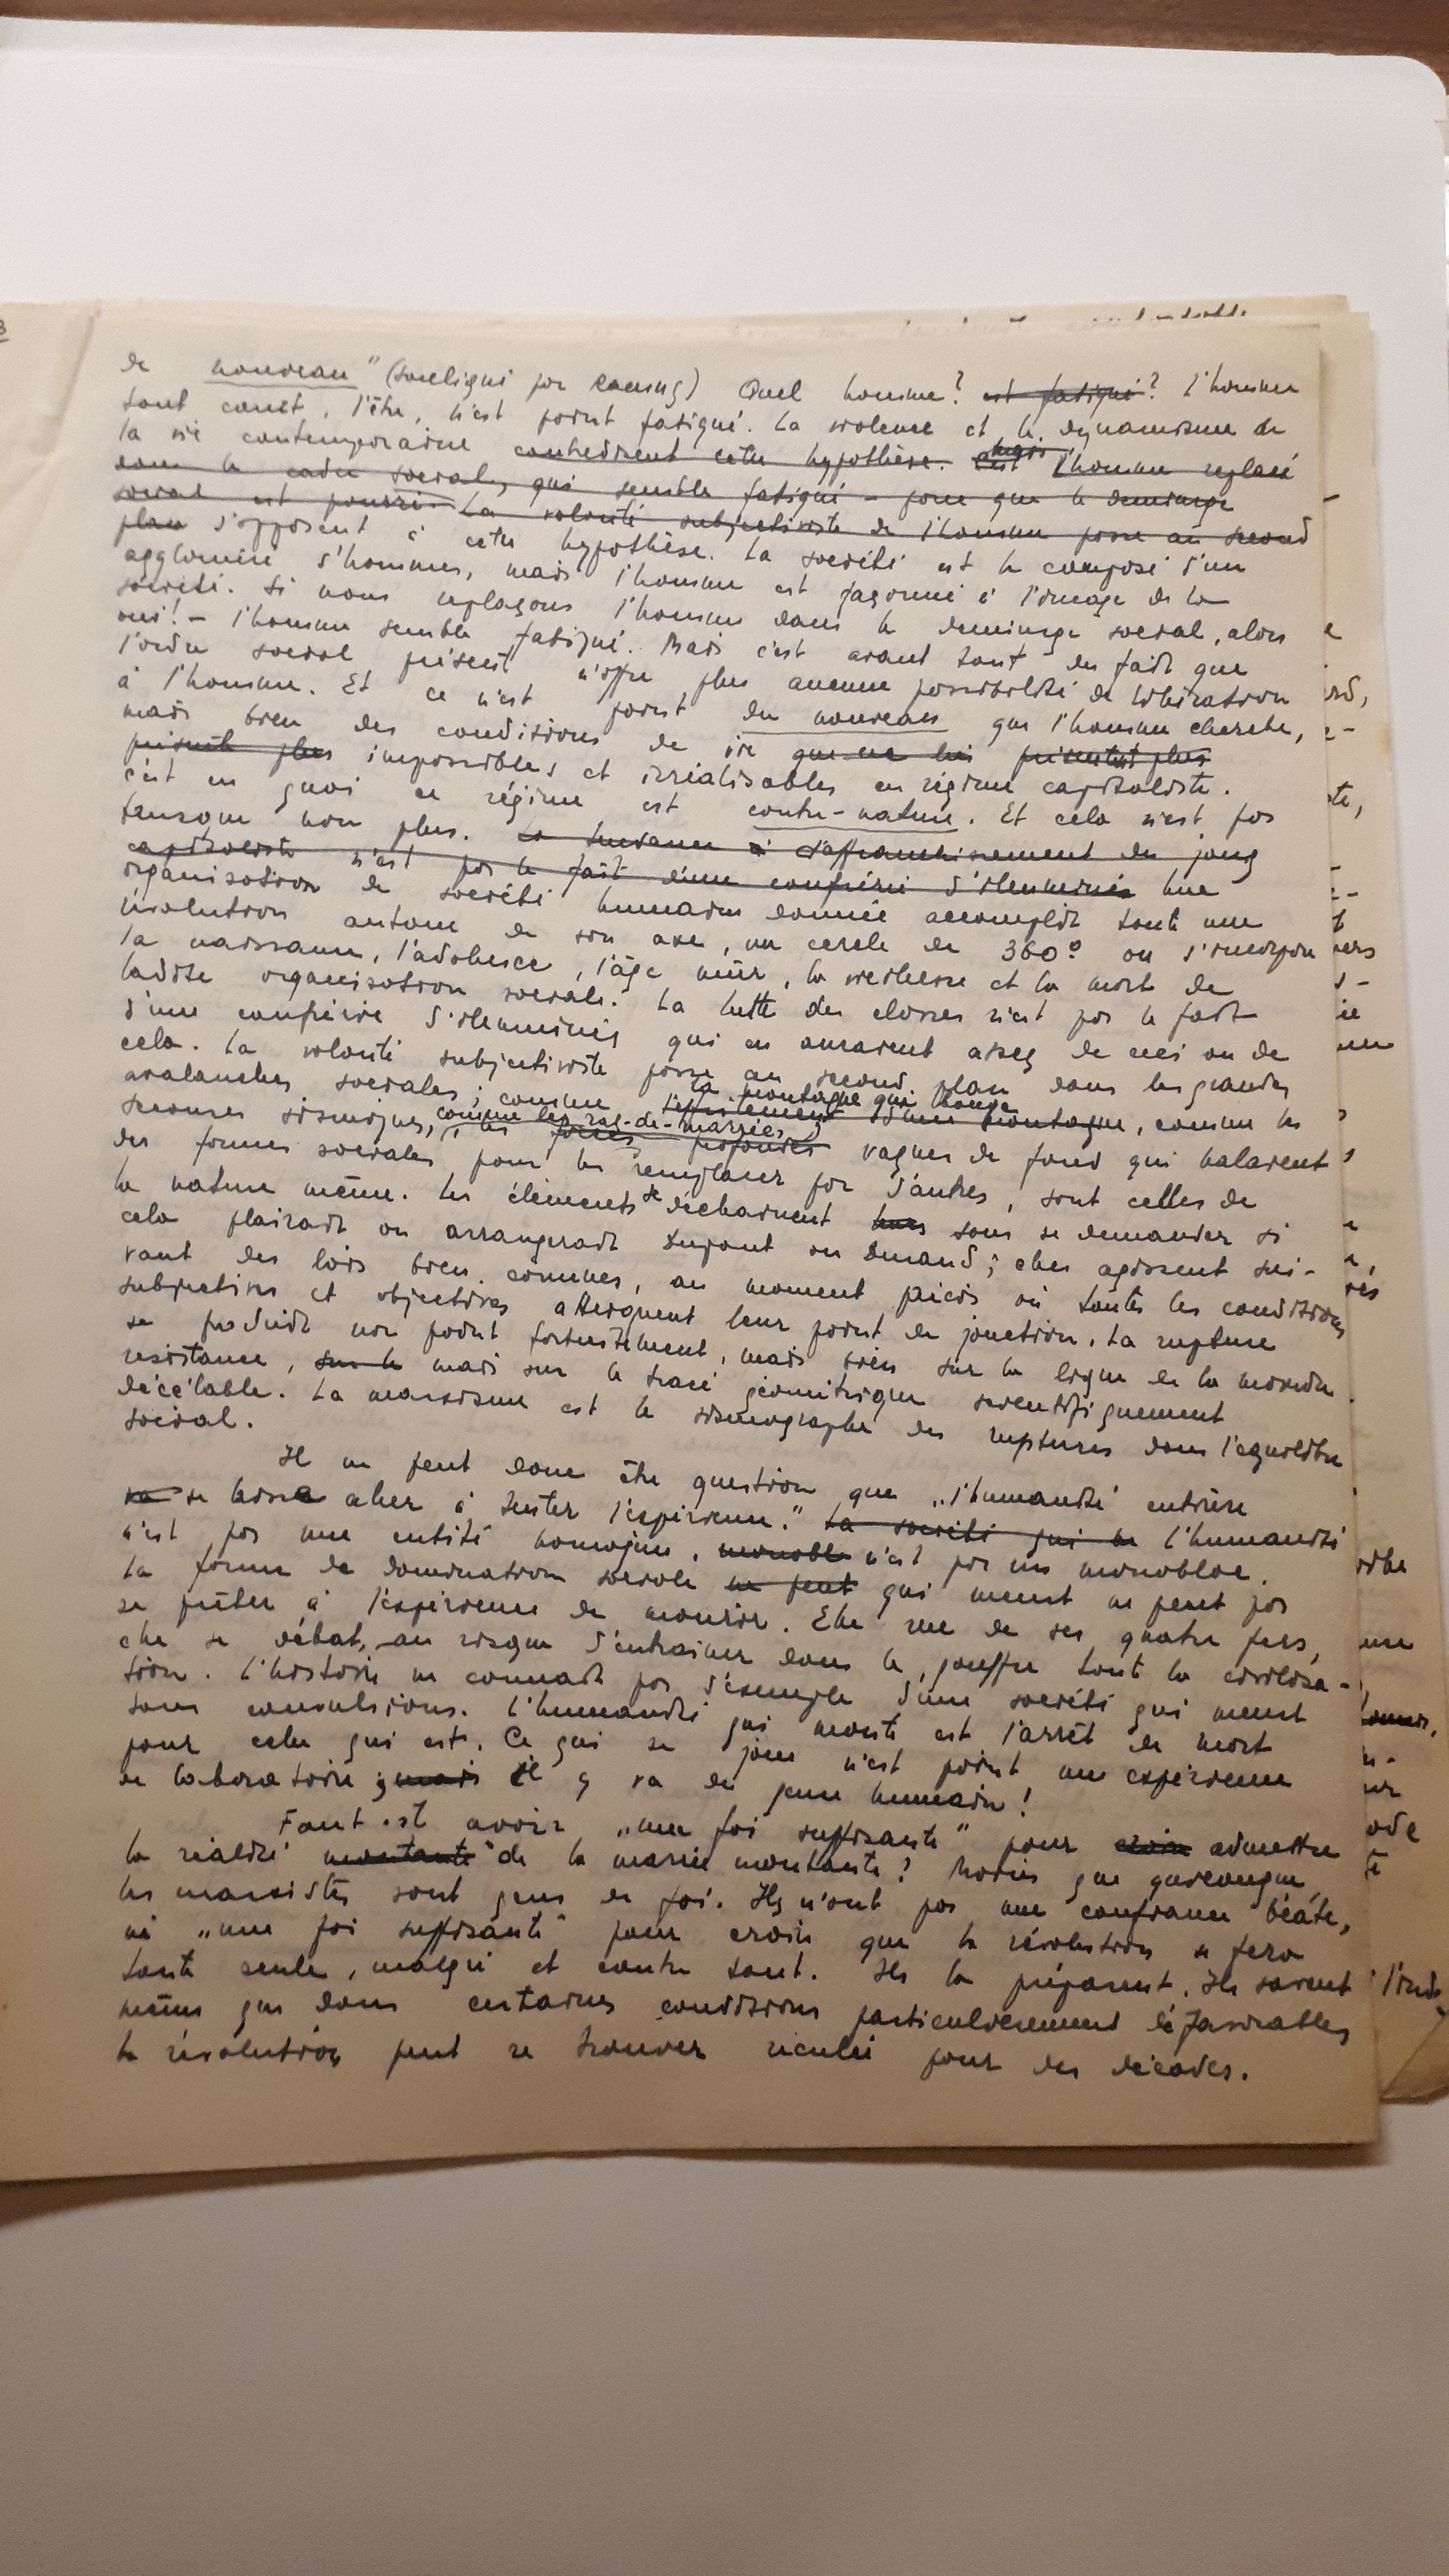 de nouveau" (souligné par Camus) Quel homme? est fatigué? L'homme
tout court, l'être, n'est point fatigué. La violence et le dynamisme de
la vie contemporaine contredisent cette hypothèse. C'est mais l'homme replacé
dans le cadre social, qui semble fatigué – parce que le demiurge
social est pourri. La volonté subjectiviste de l'homme passe au second
plan s'opposent à cette hypothèse. La société est le composé d'un
aggloméré d'hommes, mais l'homme est façonné à l'image de la
société. Si nous replaçons l'homme dans le demiurge social, alors
oui! – l'homme semble fatigué. Mais c'est avant tout du fait que
l'ordre social présent n'offre plus aucune possibilité de libération
à l'homme. Et ce n'est point du nouveau que l'homme cherche,
mais bien des conditions de vie que ne lui présentent plus
présente plus impossibles et irréalisables en régime capitaliste.
C'est en quoi ce régime est contre-nature. Et cela n'est pas
presque non plus. La tendance à s'affranchissement du joug
capitaliste n'est pas le fait d'une confrérie d'illuminés Une
organisation de société humaine donnée accomplit toute une
évolution autour de son axe, un cercle de 360° où s'incorpore
la naissance, l'adolesce, l'âge mûr, la vieillesse et la mort de
ladite organisation sociale. La lutte des classes n'est pas le fait
d'une confrérie d'illuminés qui en auraient assez de ceci ou de
cela. La volonté subjectiviste passe au second plan dans les grandes
avalanches sociales; comme la montagne qui bouge l'effritement d'une montagne, comme les
secousses sismiques, comme les raz-de-marées, les forces profondes vagues de fond qui balaient
des formes sociales pour les remplacer par d'autres, sont celles de
la nature même. Les éléments se déchainent sans se demander si
cela plairait ou arrangerait Dupont ou Durand; elles agissent sui-
vant des lois bien connues, au moment précis où toutes les conditions
subjectives et objectives atteignent leur point de jonction. La rupture
se produit non point fortuitement, mais bien sur la ligne de la moindre
resistance, sur le mais sur le tracé géométrique scientifiquement
décélable. La marxisme est le sismographe des ruptures dans l'equilibre
social.
Il ne peut donc être question que „l'humanité entière
va se laisse aller à tenter l'expérience." La société qui ne L'humanité
n'est pas une entité homogène, monoble n'est pas un monobloc.
La forme de domination sociale ne peut qui meurt ne peut pas
se prêter à l'expérience de mourir. Elle rue de ses quatre fers,
elle se débat, au risque d'entrainer dans le gouffre toute la civilisa-
tion. L'histoire ne connait pas d'exemple d'une société qui meurt
sans convulsions. L'humanité qui monte est l'arrêt de mort
pour celle qui est. Ce qui se joue n'est point une expérience
de laboratoire; mais il y va du genre humain!
Faut-il avoir „une foi suffisante" pour croire admettre
la réalité montante de la marée montante? Moins que quiconque
les marxistes sont gens de foi. Ils n'ont pas une confiance béate,
ni „une foi suffisante" pour croire que la révolution se fera
toute seule, malgré et contre tout. Ils la préparent. Ils savent
même que dans certaines conditions particulièrement défavorables
la révolution peut se trouver reculée pour des décades.